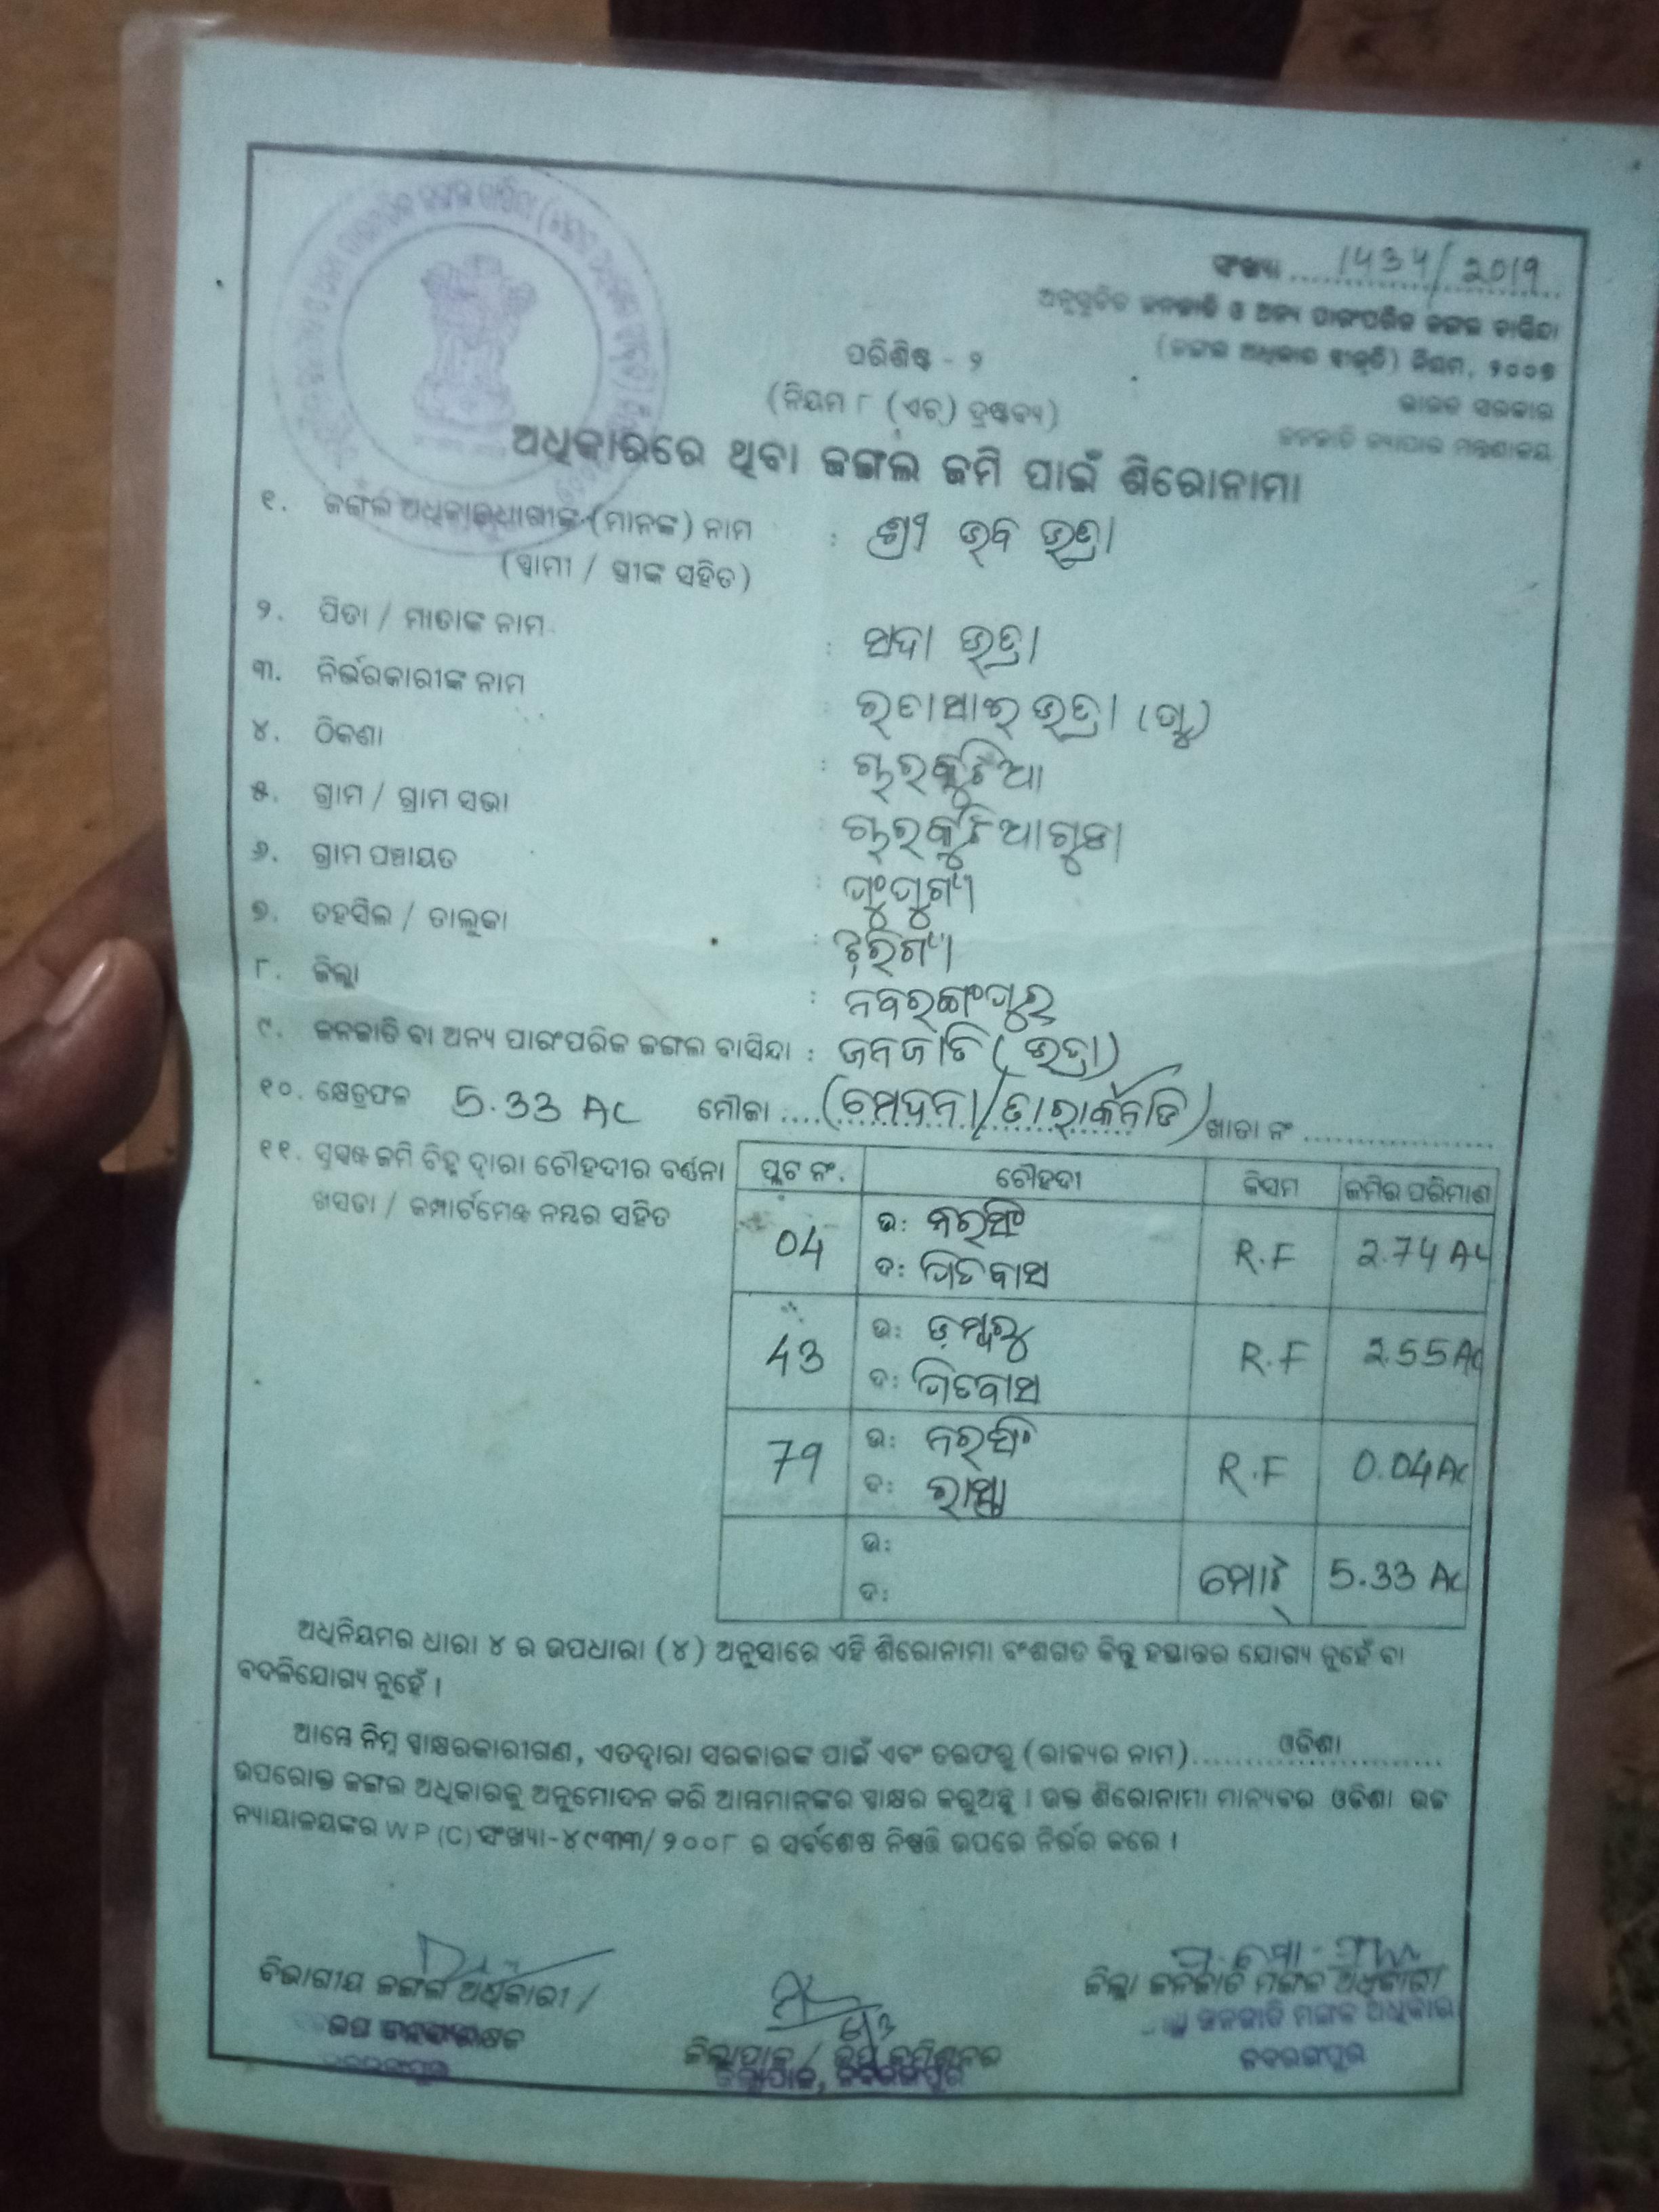 ସଂଖ୍ୟା .... 1434/2019
ଅନୁସୂଚିତ ଜନଜାତି ଓ ଅନ୍ୟ ପାରଂପରିକ ଜଙ୍ଗଲ ବାସିନ୍ଦା
(ଜଙ୍ଗଲ ଅଧିକାର ସ୍ୱୀକୃତି) ନିୟମ, ୨୦୦୭
ଭାରତ ସରକାର
ଜନଜାତି ବ୍ୟାପାର ମନ୍ତ୍ରଣାଳୟ
ପରିଶିଷ୍ଟ - ୨
(ନିୟମ ୮ (ଏଚ୍) ଦ୍ରଷ୍ଟବ୍ୟ)
ଅଧିକାରରେ ଥିବା ଜଙ୍ଗଲ ଜମି ପାଇଁ ଶିରୋନାମା
୧. ଜଙ୍ଗଲ ଅଧିକାରଧାରୀଙ୍କ (ମାନଙ୍କ) ନାମ : ଶ୍ରୀ ଭବ ଭତ୍ରା
(ସ୍ୱାମୀ / ସ୍ତ୍ରୀଙ୍କ ସହିତ)
୨. ପିତା / ମାତାଙ୍କ ନାମ : ଅଦା ଭତ୍ରା
୩. ନିର୍ଭରକାରୀଙ୍କ ନାମ : ଭତ୍ରା
୪. ଠିକଣା :
୫. ଗ୍ରାମ / ଗ୍ରାମ ସଭା :
୬. ଗ୍ରାମ ପଞ୍ଚାୟତ :
୭. ତହସିଲ / ତାଲୁକା : ଝରିଗାଁ
୮. ଜିଲ୍ଲା : ନବରଙ୍ଗପୁର
୯. ଜନଜାତି ବା ଅନ୍ୟ ପାରଂପରିକ ଜଙ୍ଗଲ ବାସିନ୍ଦା : ଜନଜାତି (ଭତ୍ରା)
୧୦. କ୍ଷେତ୍ରଫଳ 5.33 Ac ମୌଜା .... ଖାତା ନଂ ....
୧୧. ସୁସ୍ପଷ୍ଟ ଜମି ଚିହ୍ନ ଦ୍ୱାରା ଚୌହଦୀର ବର୍ଣ୍ଣନା
ଖସଡା / କମ୍ପାର୍ଟମେଣ୍ଟ ନମ୍ବର ସହିତ
ପ୍ଲଟ ନଂ. ଚୌହଦୀ କିସମ ଜମିର ପରିମାଣ
04 ଉ: ନରସିଂ R.F 2.74 Ac
ଦ: ପିତବାସ
43 ଉ: ଡମ୍ବରୁ R.F 2.55 Ac
ଦ: ପିତବାସ
79 ଉ: ନରସିଂ R.F 0.04 Ac
ଦ: ରାସ୍ତା
ଉ: ମୋଟ୍ 5.33 Ac
ଦ:
ଅଧିନିୟମର ଧାରା ୪ ର ଉପଧାରା (୪) ଅନୁସାରେ ଏହି ଶିରୋନାମା ବଂଶଗତ କିନ୍ତୁ ହସ୍ତାନ୍ତର ଯୋଗ୍ୟ ନୁହେଁ ବା
ବଦଳିଯୋଗ୍ୟ ନୁହେଁ ।
ଆମ୍ଭେ ନିମ୍ନ ସ୍ୱାକ୍ଷରକାରୀଗଣ, ଏତଦ୍ୱାରା ସରକାରଙ୍କ ପାଇଁ ଏବଂ ତରଫରୁ (ରାଜ୍ୟର ନାମ) .... ଓଡିଶା ....
ଉପରୋକ୍ତ ଜଙ୍ଗଲ ଅଧିକାରକୁ ଅନୁମୋଦନ କରି ଆମ୍ଭମାନଙ୍କର ସ୍ୱାକ୍ଷର କରୁଅଛୁ । ଉକ୍ତ ଶିରୋନାମା ମାନ୍ୟବର ଓଡିଶା ଉଚ୍ଚ
ନ୍ୟାୟାଳୟଙ୍କର W P (C) ସଂଖ୍ୟା-୪୯୩୩/୨୦୦୮ ର ସର୍ବଶେଷ ନିଷ୍ପତ୍ତି ଉପରେ ନିର୍ଭର କରେ ।
ବିଭାଗୀୟ ଜଙ୍ଗଲ ଅଧିକାରୀ /
ଉପ ବନସଂରକ୍ଷକ
ନବରଙ୍ଗପୁର
ଜିଲ୍ଲାପାଳ / ଉପ କମିଶନର
ଜିଲ୍ଲାପାଳ, ନବରଙ୍ଗପୁର
ଜିଲ୍ଲା ଜନଜାତି ମଙ୍ଗଳ ଅଧିକାରୀ
ଜନଜାତି ମଙ୍ଗଳ ଅଧିକାରୀ
ନବରଙ୍ଗପୁର